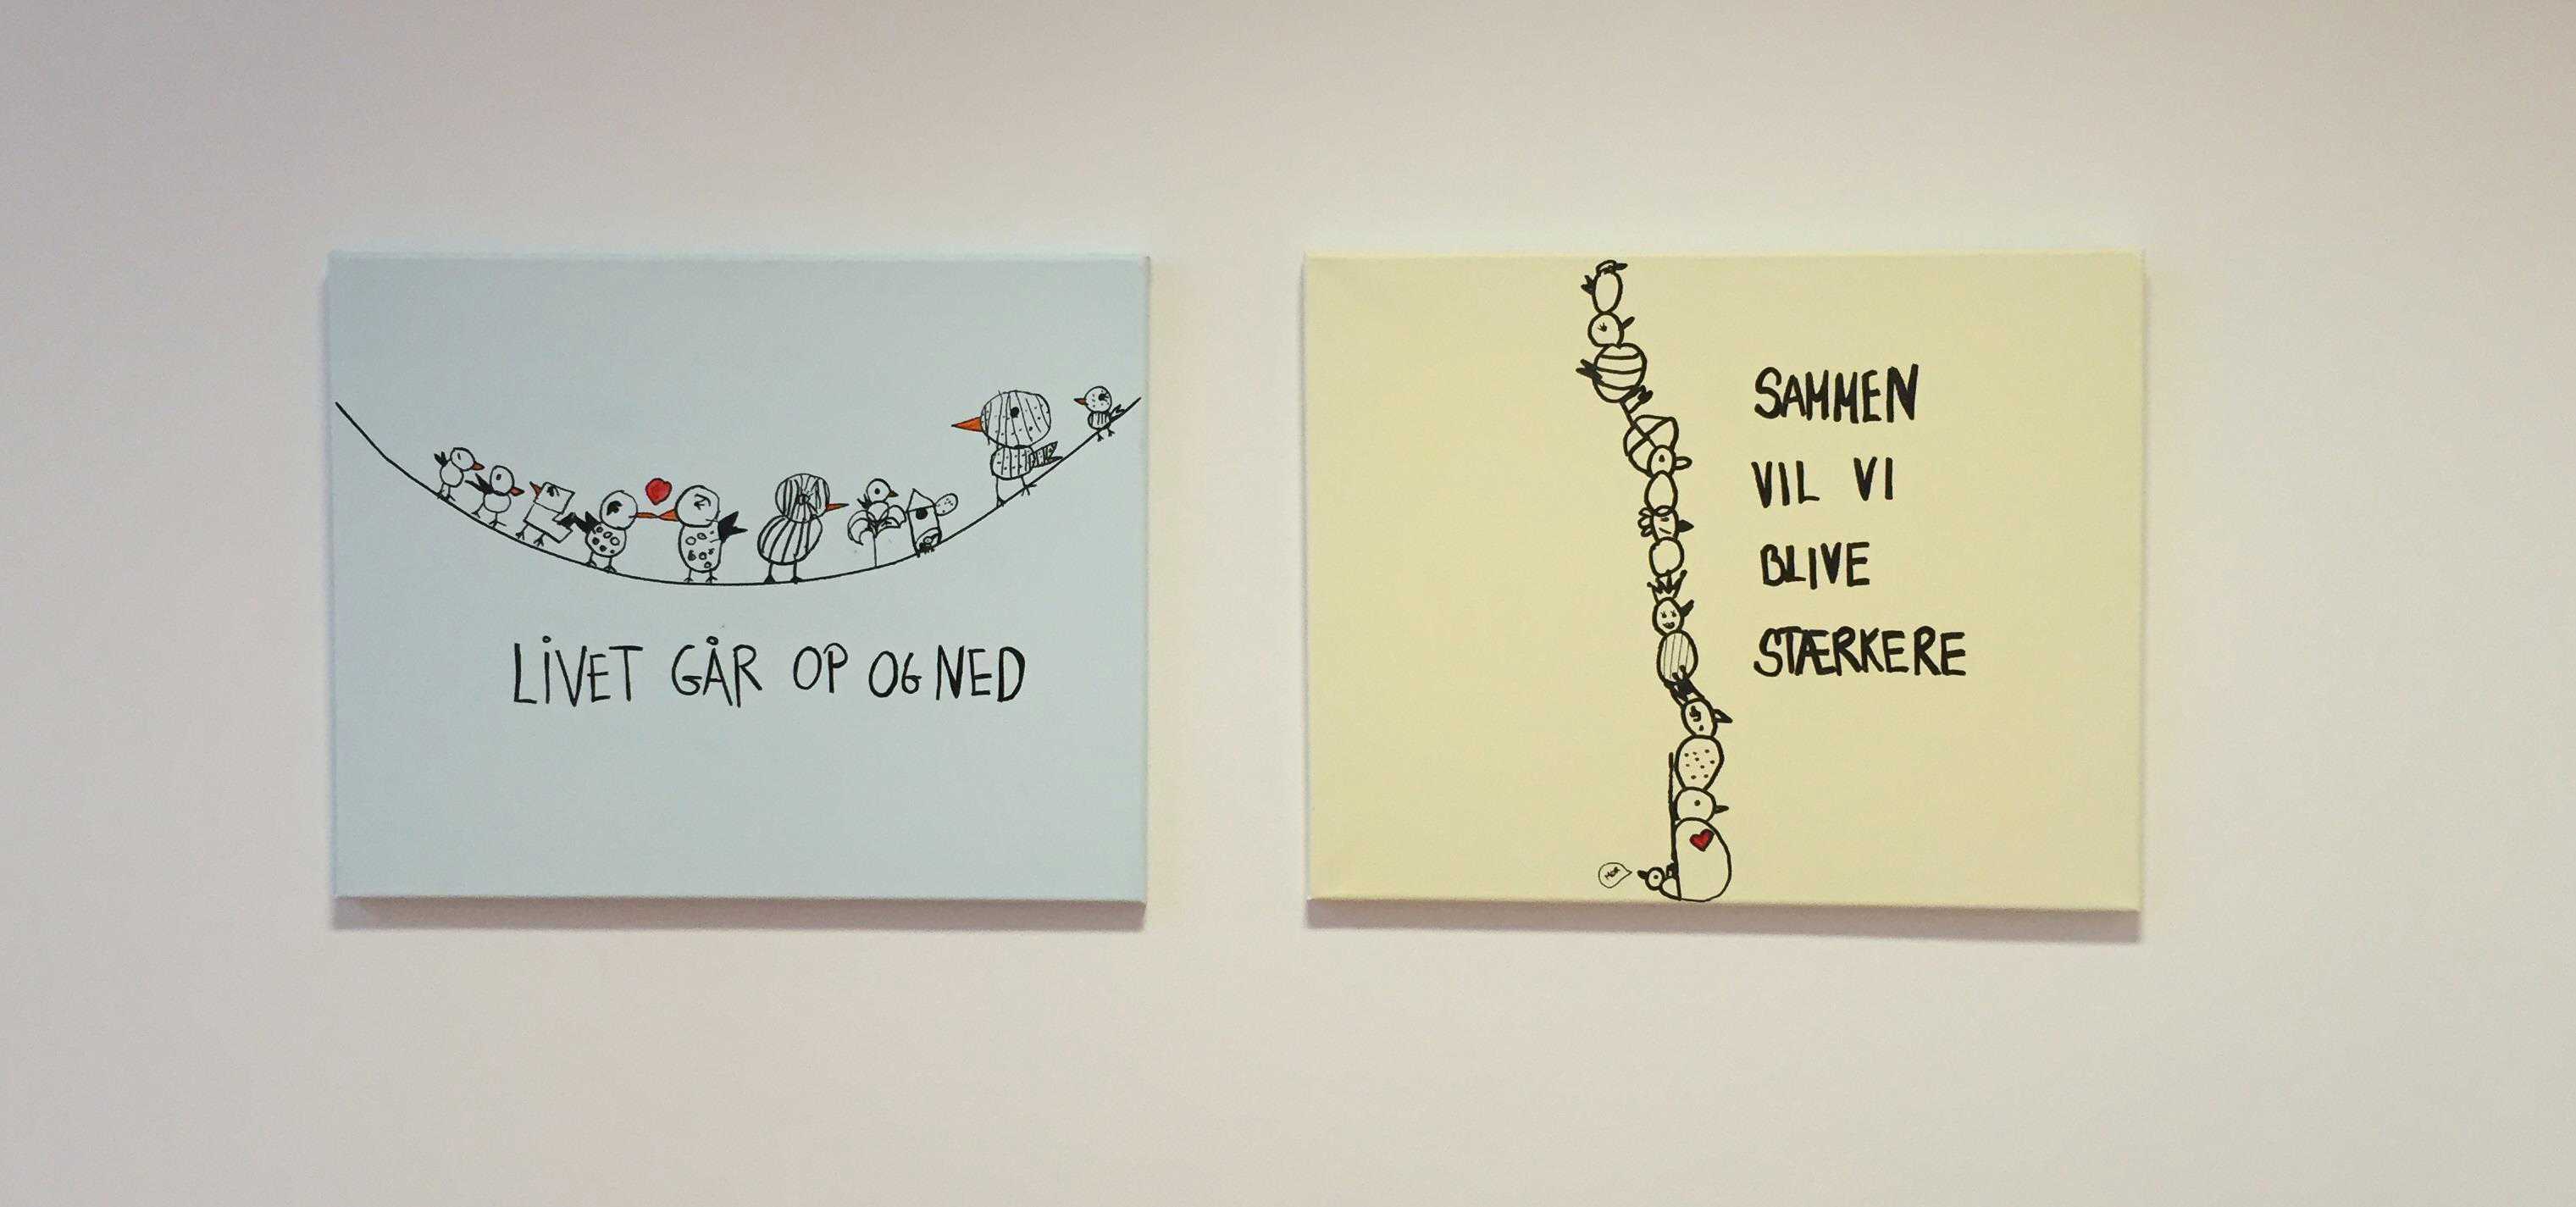 LIVET GÅR OP OG NED
SAMMEN
VIL VI
BLIVE
STÆRKERE